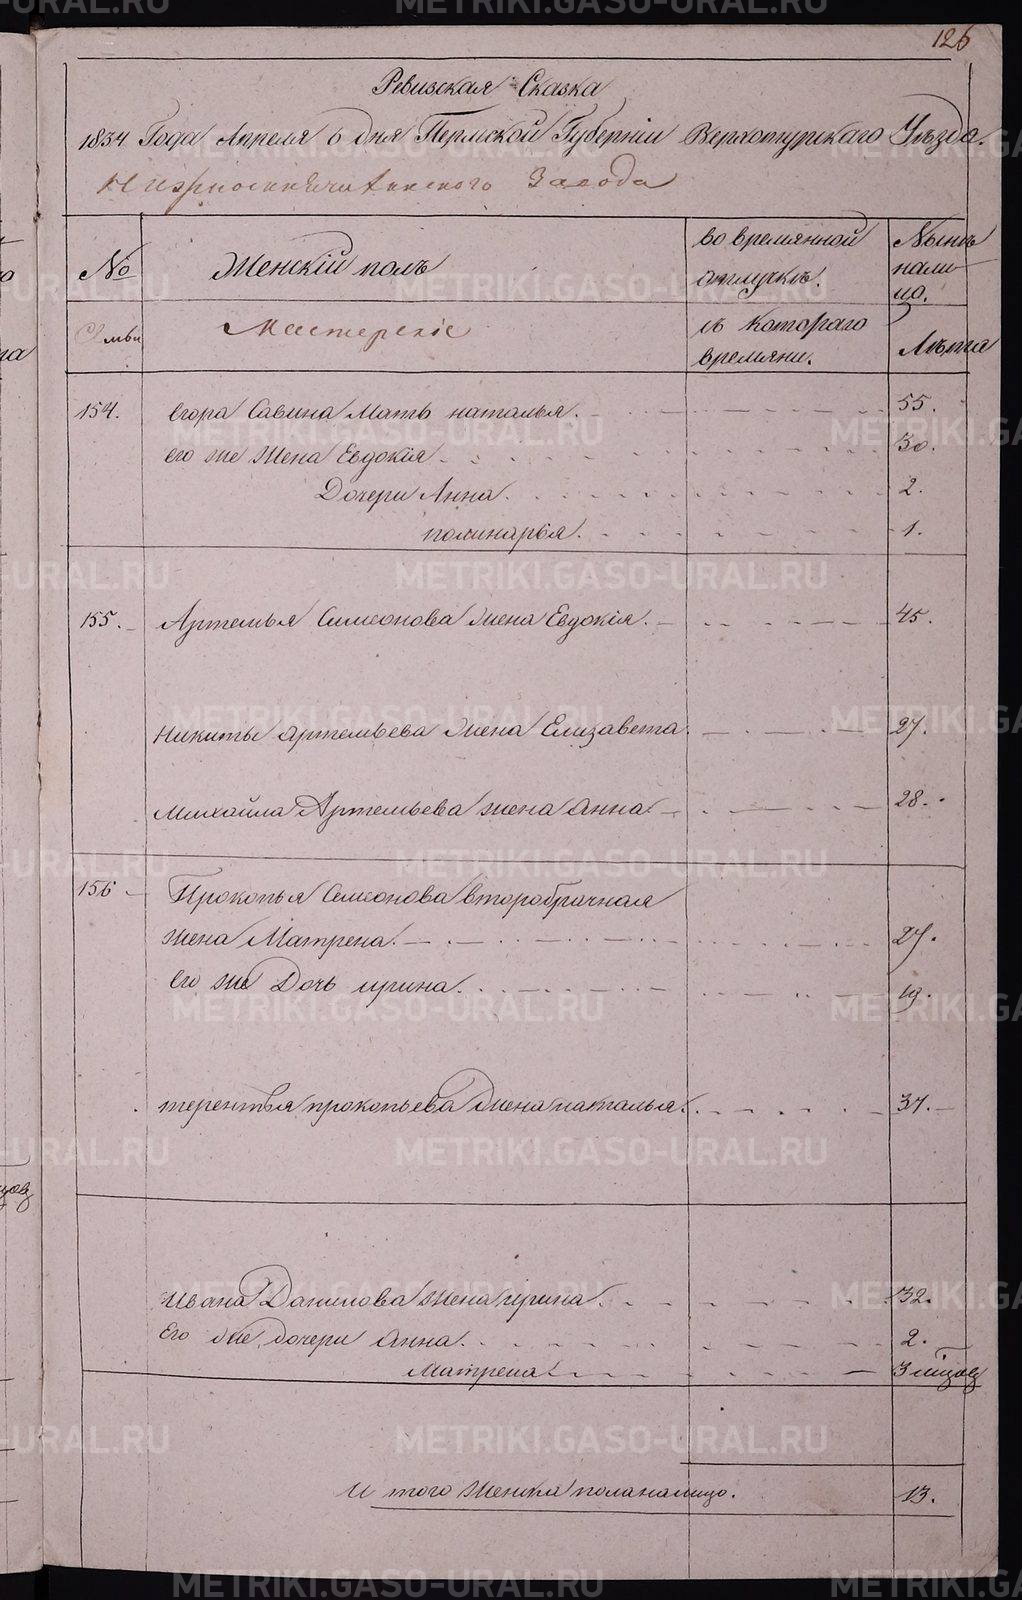 126
Ревизская Сказка
1834 Года Апреля 6 дня Пермской Губерніи Верхотурскаго Уѣзда.
Завода
№ Женскій полъ во времянной Нынѣ
отлучкѣ. нали
цо.
Семьи Мастерскіе съ котораго
времяни. Лѣта
154. Егора Савина Мать наталья. 55.
его же Жена Евдокія 30.
Дочери Анна. 2.
полинарья. 1.
155. Артемья Симеонова жена Евдокія. 45.
Никиты Артемьева жена Елизавета. 27.
Михайла Артемьева жена Анна. 28.
156 Прокопья Семионова второбрачная
жена Матрена. 27.
его же Дочь ирина. 19.
терентья прокопьева жена наталья. 37.
Ивана Данилова жена ирина. 32.
Его же дочери Анна. 2.
Матрена 3
И того женска пола налицо. 13.
METRIKI.GASO-URAL.RU